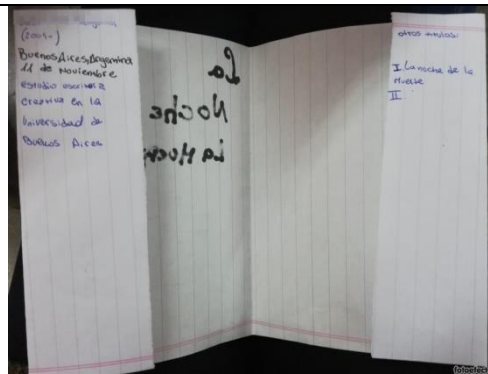 (2005-)
Buenos Aires, Argentina
11 de Noviembre
estudio escritura
creativa en la
Universidad de
Buenos Aires
La
Noche
La Muer
otros titulos:
I. La noche de la
muerte
II
fotoefectos